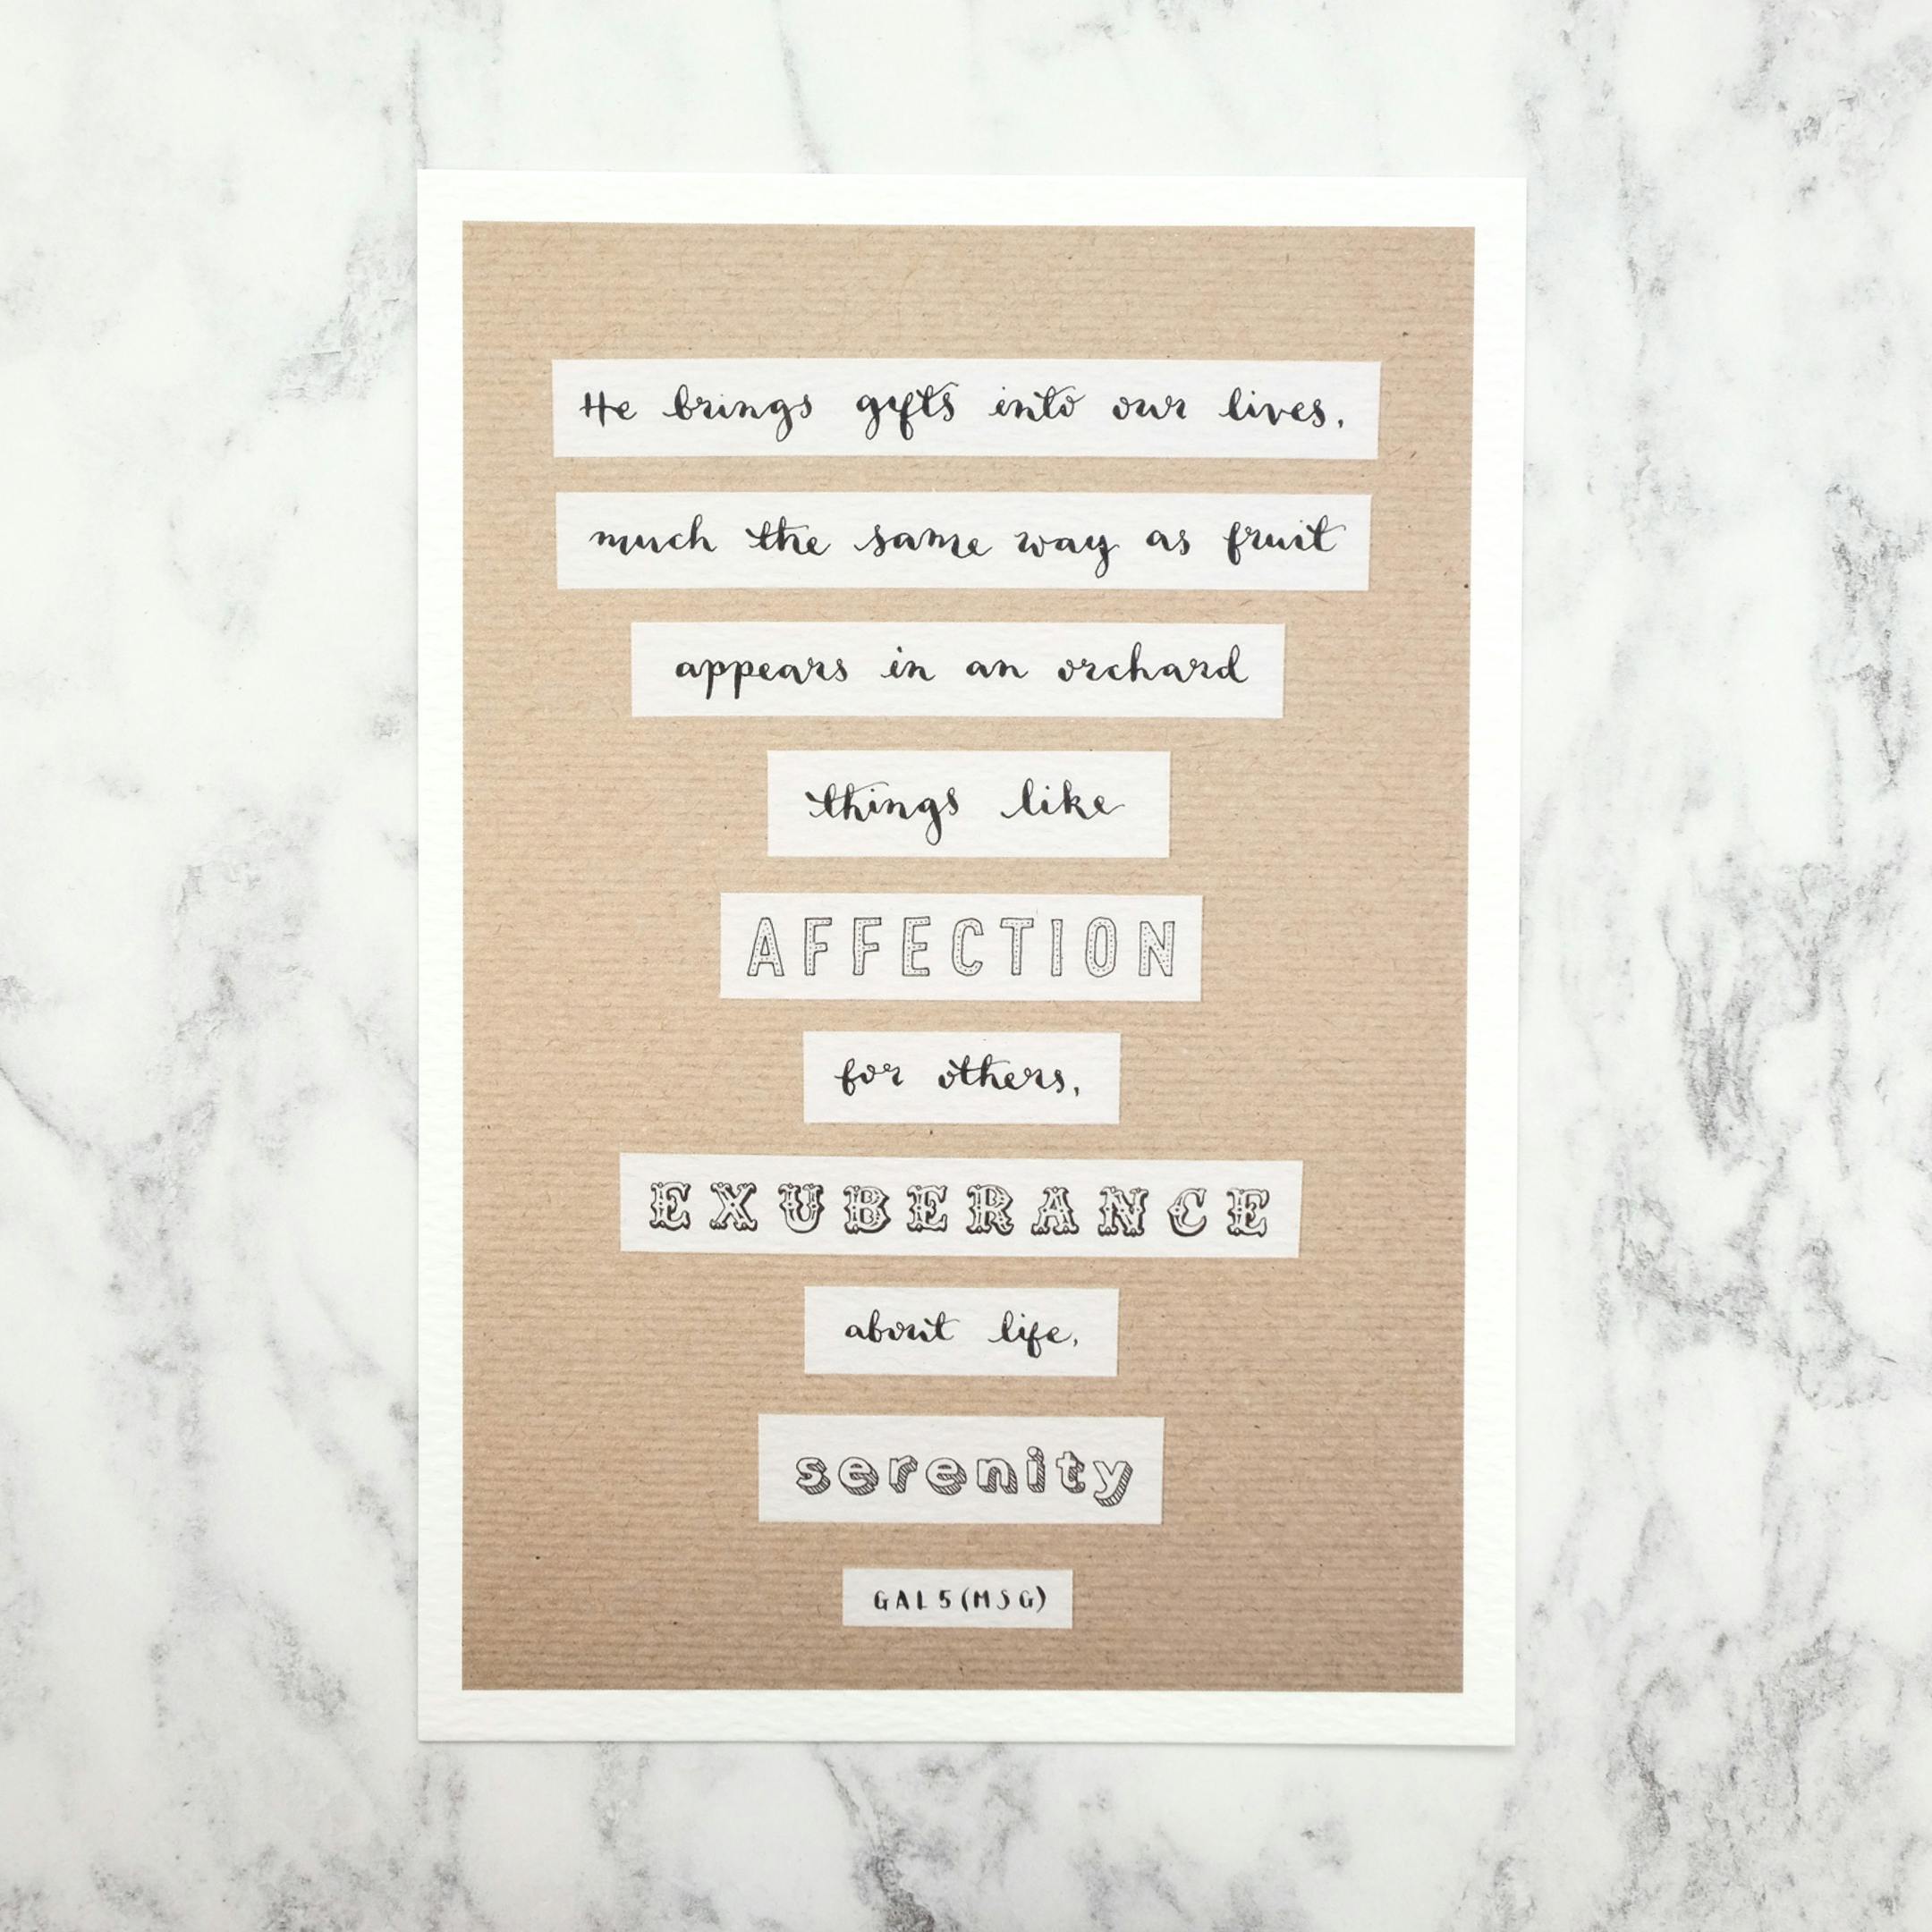 He brings gifts into our lives,
much the same way as fruit
appears in an orchard
things like
AFFECTION
for others,
EXUBERANCE
about life,
serenity
GAL 5 (MSG)